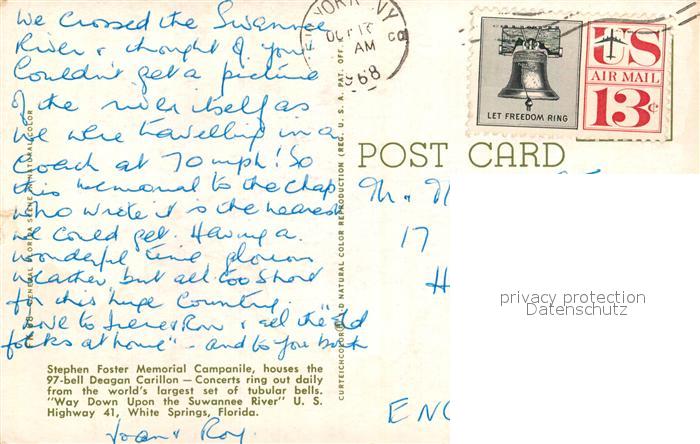 We crossed the Swannee
River & thought of you.
Couldn't get a picture
of the river itself as
we were travelling in a
coach at 70 mph! So
this memorial to the chap
who wrote it is the nearest
we could get. Having a
wonderful time glorious
weather, but all too short
for this huge Country.
Love to Irene & Ron & all the "old
folks at home" - and to you both
Joan & Roy
Stephen Foster Memorial Campanile, houses the
97-bell Deagan Carillon — Concerts ring out daily
from the world's largest set of tubular bells.
"Way Down Upon the Suwannee River" U. S.
Highway 41, White Springs, Florida.
GENERAL FLORIDA SCENE IN NATURAL COLOR
NATURAL COLOR REPRODUCTION (REG. U. S. A. PAT. OFF.
YORK, NY
OCT 17
AM
1968
LET FREEDOM RING
US
AIR MAIL
13c
POST CARD
M.
17
H
ENG
privacy protection
Datenschutz